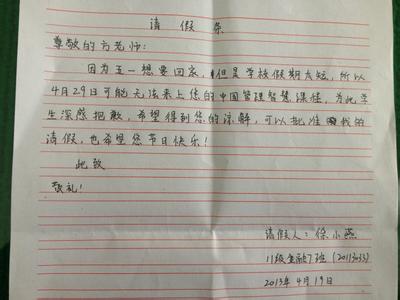 请假条
尊敬的方老师:
因为五一想要回家,但是学校假期太短,所以
4月29日可能无法来上您的中国管理智慧课程,为此学
生深感抱歉,希望得到您的谅解,可以批准我的
请假,也希望您节日快乐!
此致
敬礼!
请假人:徐小燕
11级金融7班(20113033)
2013年4月19日